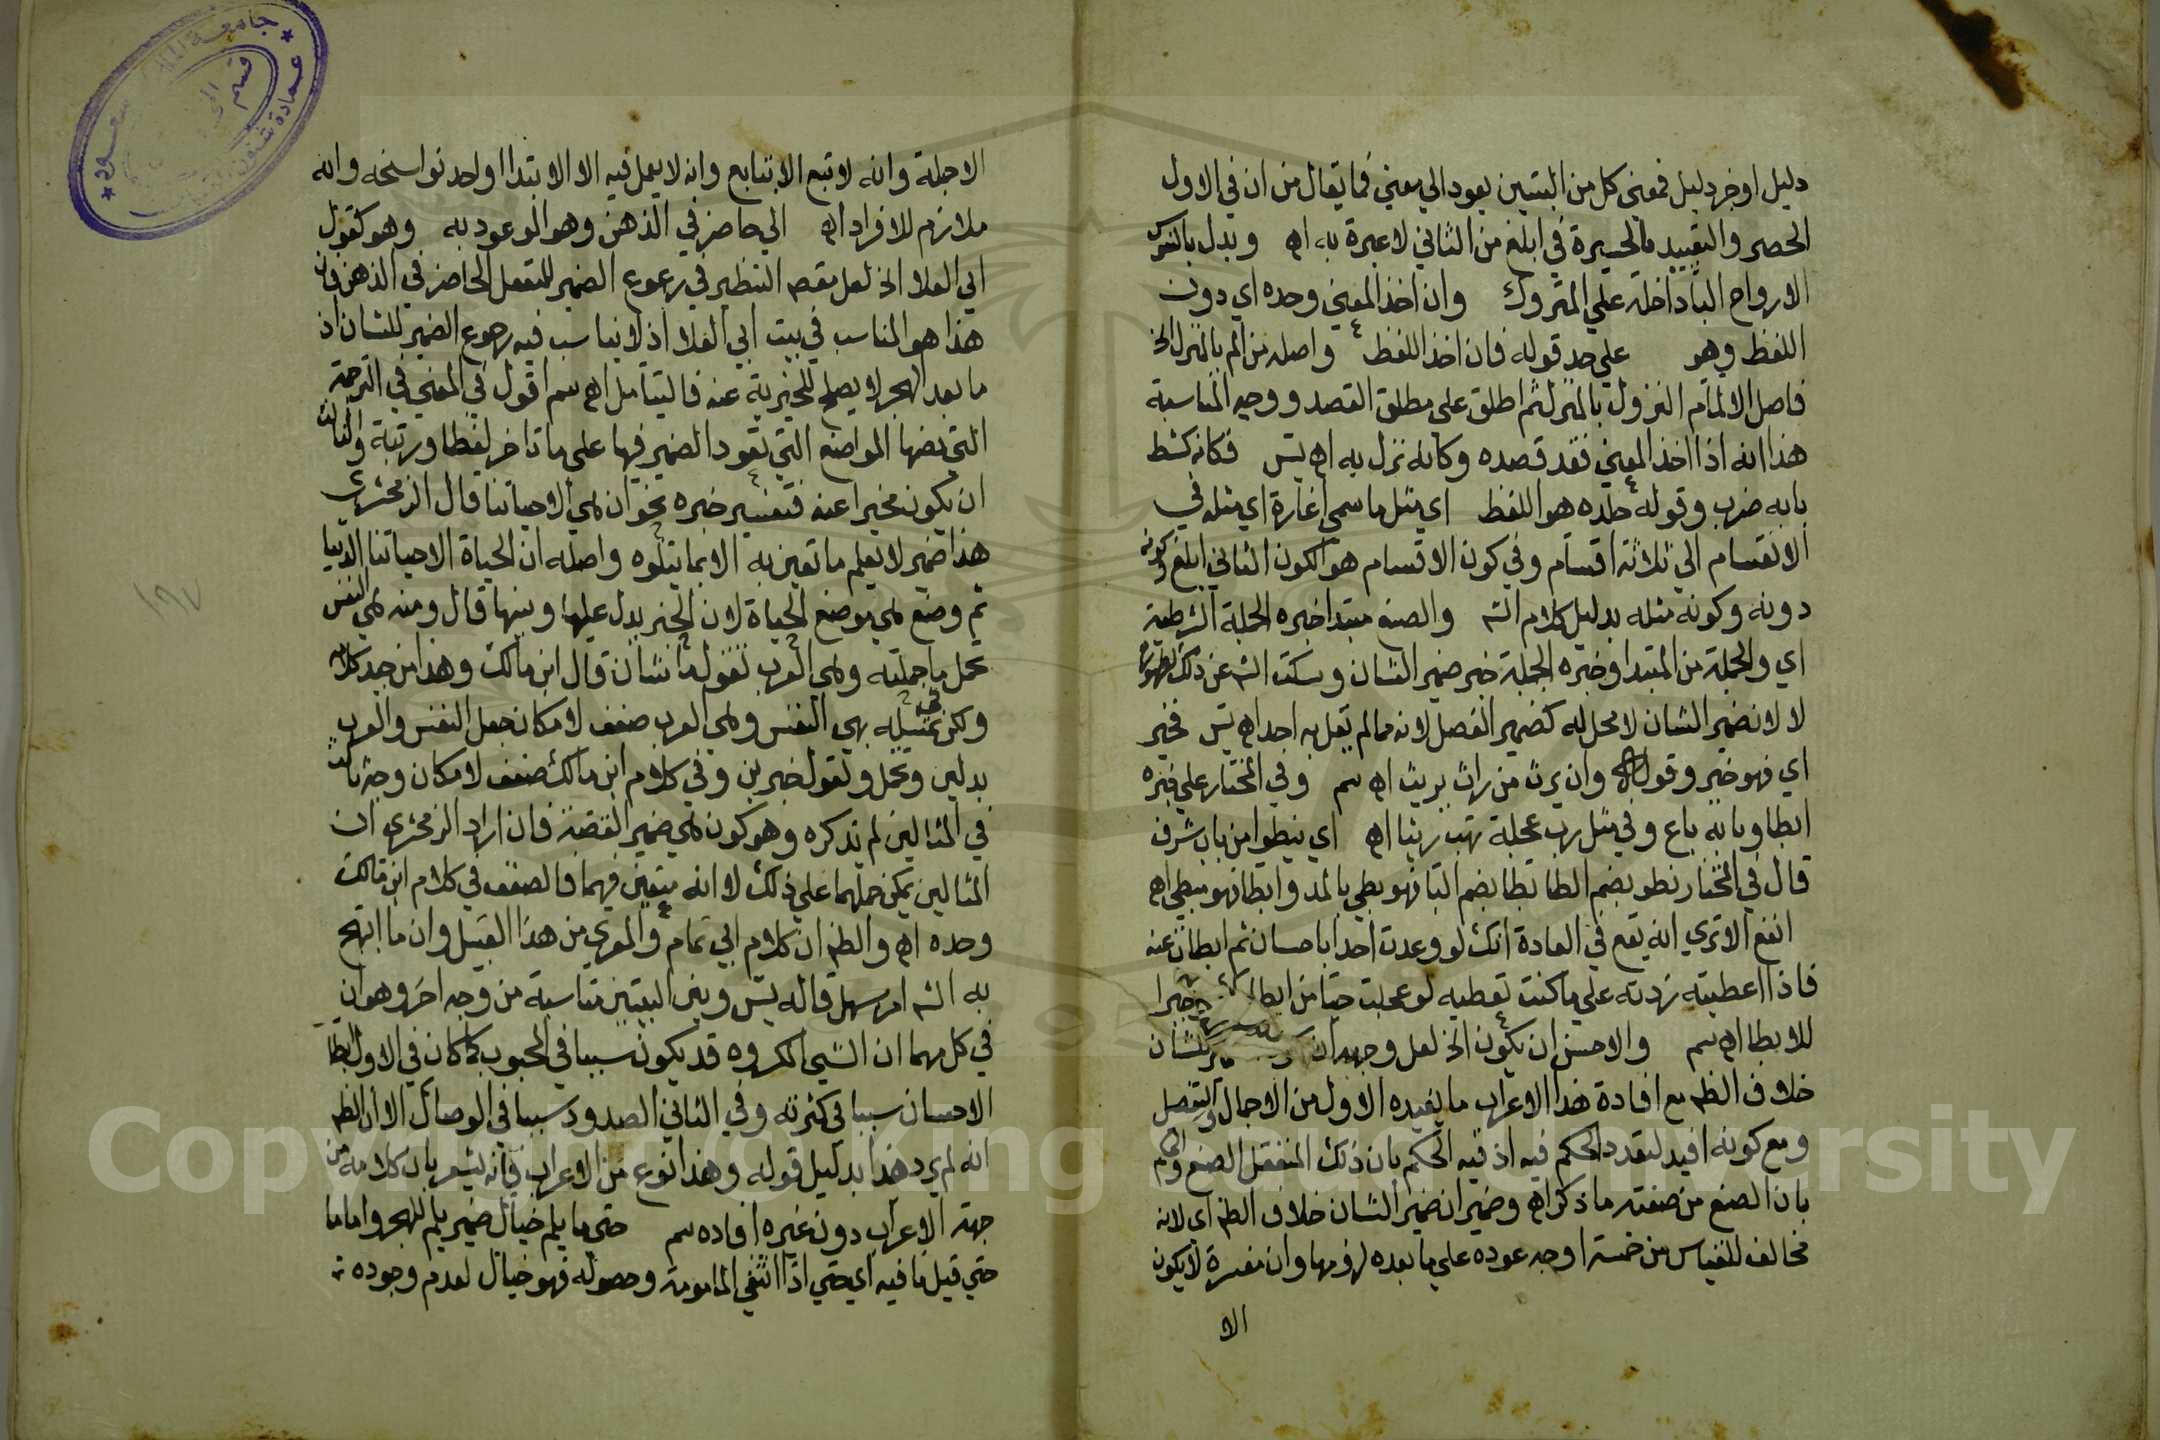 دليل اوخر دليل فمعنى كل من البيتين يعود الي معني فما يقال من ان في الاول
الحصر والتقييد بالحسرة في ابلغ من الثاني لا عبرة به اه وبدل بالنفوس
الارواح البا داخلة علي المتروك وان اخذ المعني وحده اي دون
اللفظ وهو علي حد قوله فان اخذ اللفظ واصله من الم بالمنزل الخ
فاصل الالمام النزول بالمنزل ثم اطلق علي مطلق القصد ووجه المناسبة
هذا انه اذا اخذ المعني فقد قصده وكانه نزل به اه يس فكانه كشط
بابه ضرب وقوله جلده هو اللفظ اي مثل ما سمي اغارة اي مثله في
الانقسام الي ثلاثة اقسام وفي كون الاقسام هو الكون الثاني ابلغ وكونه
دونه وكونه مثله بدليل كلام الش والصنع مبتدا خبره الجملة الشرطية
اي والجملة من المبتدا وخبره الجملة خبر ضمير الشان وسكت الش عن ذلك لظهوره
لا لان ضمير الشان لا محل له كضمير الفصل لانه مما لم يقل به احد اه يس فخير
اي فهو خير وقوله وان يرث من راث يريث اه سم وفي المختار علي خبره
ابطا وبابه باع وفي مثل رب عجلة تهب ريثا اه اي يبطوا من باب شرف
قال في المختار بطو بضم الطا تبطا بضم التا فهو بطي بالمد وابطا فهو مبطي اه
انفع الا تري انه يقع في العادة انك لو وعدت احدا باحسان ثم ابطات عنه
فاذا اعطيته زدته علي ما كنت تعطيه لو عجلت حيا من ابطا خيرا
للابطا اه سم والاحسن ان يكون الخ لعل وجهه ان للشان
خلاف الظ مع افادة هذا الاعراب ما يفيده الاول من الاجمال والتفصيل
ومع كونه افيد لتعدد الحكم فيه اذ فيه الحكم بان ذلك المتعقل الصنع والحكم
بان الصنع من صفته ما ذكر اه وضمير ان ضمير الشان خلاف الظ اي لانه
مخالف للقياس من خمسة اوجه عوده علي ما بعده لزومها وان مفسره لا يكون
الا
الا جملة وانه لا تبع الا بتابع وانه لا يعمل فيه الا الابتدا او احد نواسخه وانه
ملازم للافراد اه الي حاضر في الذهن وهو الموعود به وهو كقول
ابي العلا الخ لعل مقصه التنظير في رجوع الضمير للتعقل الحاضر في الذهن فان
هذا هو المناسب في بيت ابي العلا اذ لا يناسب فيه رجوع الضمير للشان اذ
ما بعد الهجر لا يصلح للخبرية عنه فاليتامل اه سم اقول في المغني في الترجمة
التي بضها المواضع التي تعود الضمير فيها علي ما تاخر لفظا ورتبة والثالث
ان يكون مخبرا عنه فتفسيره خبره نحو ان هي الا حياتنا قال الزمخشري
هذا ضمير لا يعلم ما تعين به الا بما يتلوه واصله ان الحياة الا حياتنا الدنيا
ثم وضع هي موضع الحياة لان الخبر يدل عليها وبينها قال ومنه هي النفس
تحمل ما حملته وهي العرب تقول ما شان قال ابن مالك وهذا من جيد كلامه
ولكن تمثيله بهي النفس وهي العرب ضعف لامكان جعل النفس والعرب
بدلين وتحمل وتقول خبرين وفي كلام ابن مالك ضعف لامكان وجه ثالث
في المثالين لم تذكره وهو كون هي ضمير القصة فان اراد الزمخشري ان
المثالين يمكن حملهما علي ذلك لا انه متعين فيهما فالضعف في كلام ابن مالك
وحده اه والظ ان كلام ابي تمام والمعري من هذا القبيل وان ما ابتهج
به الش امر سهل قاله يس وبين البيتين مناسبة من وجه اخر وهو ان
في كل منهما ان الشي المكروه قد يكون سببا في المحبوب كما كان في الاول ابطا
الاحسان سببا في كثرته وفي الثاني الصدود سببا في الوصال الا ان الظ
انه لم يرد هذا بدليل قوله وهذا نوع من الاعراب فانه يشعر بان كلامه من
جهة الاعراب دون غيره افاده سم حتي ما يلم خيال ضمير يلم للهجر واما ما
حتي قيل ما فيه اي حتي اذا انتفي المامومة وحصوله فهو خيال لعدم وجوده